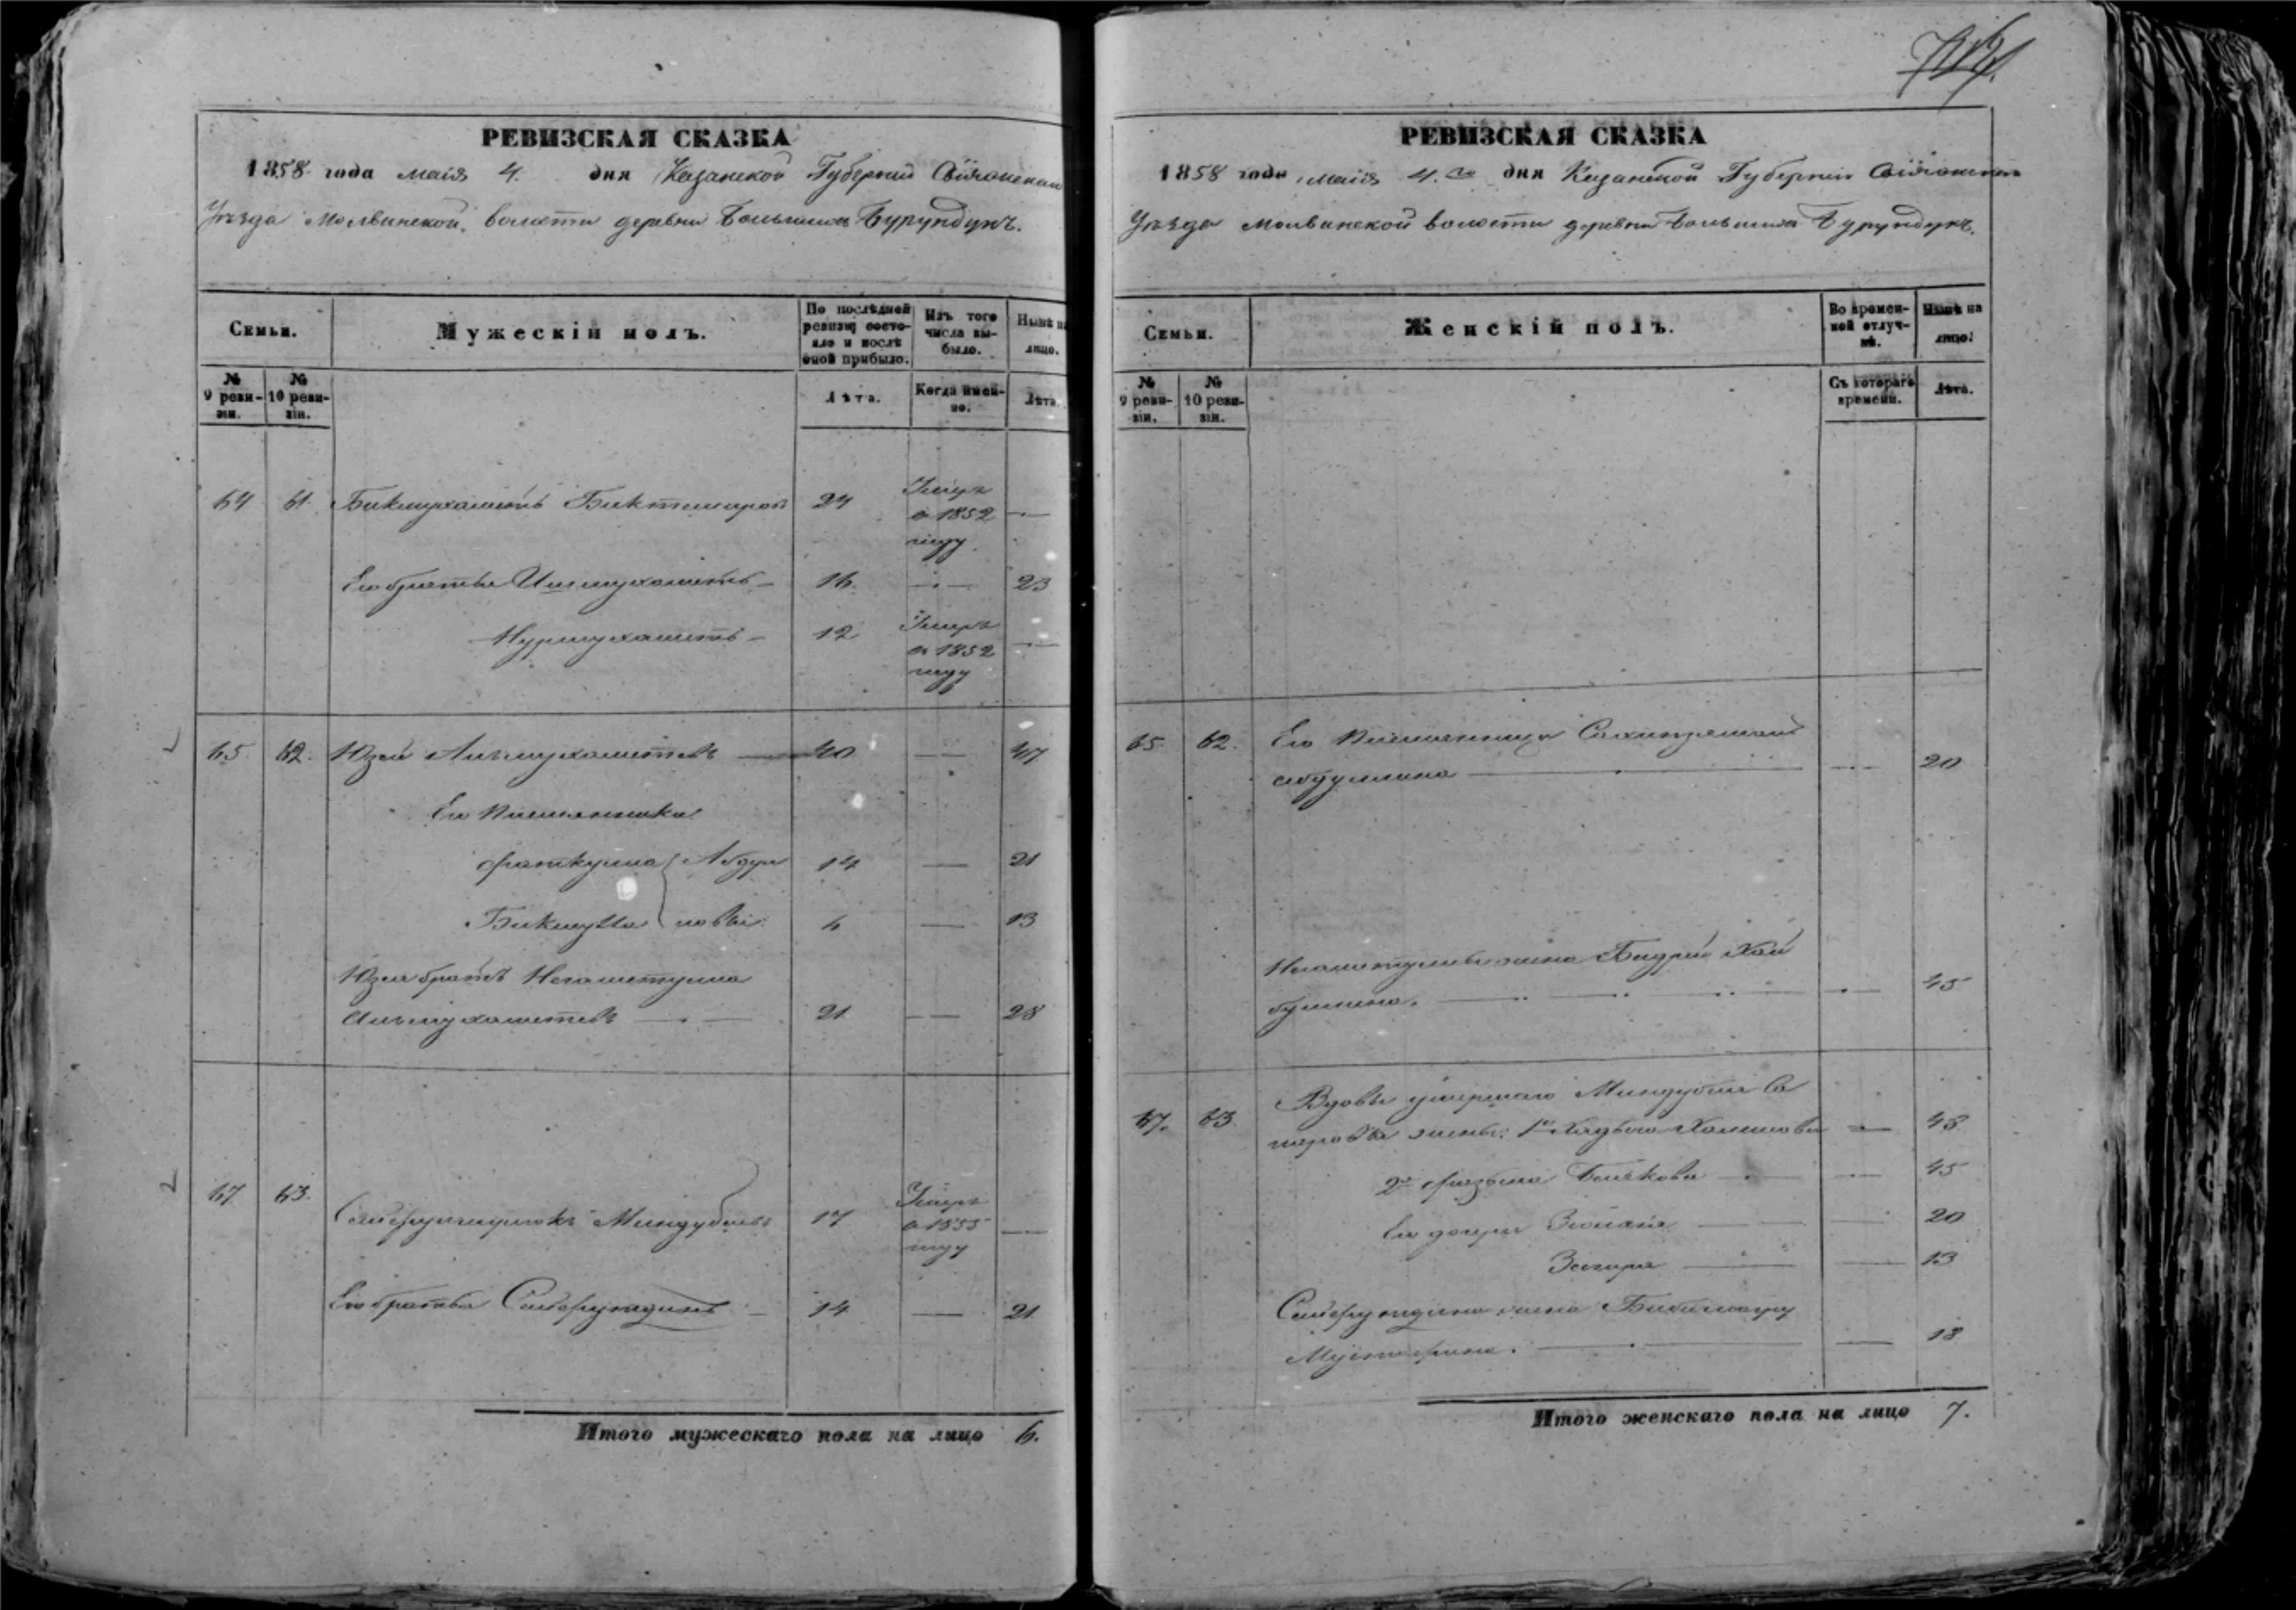 РЕВИЗСКАЯ СКАЗКА
1858 года маія 4. дня Казанской Губерніи Свіяжскаго
Уѣзда Молвинской волости деревни Большихъ Бурундукъ.
Семьи.
Мужескій полъ.
По послѣдней ревизіи состояло и послѣ оной прибыло.
Изъ того числа выбыло.
Нынѣ на лицо.
№ 9 ревизіи.
№ 10 ревизіи.
Лѣта.
Когда именно.
Лѣта.
64 61. Бикмухаметъ Биктимировъ 24 Умеръ в 1852 году —
Его братья Ишмухаметъ 16. — 23
Нурмухаметъ 12 Умеръ в 1852 году —
65 62. Юзей Алимухаметевъ 40 — 47
Его племянники
Фаткулла Абдул 14 — 21
Бикмулла ловы 6 — 13
Юзея братъ Негаметулла
Алимухаметевъ 21 — 28
67 63. Сайфульмулюкъ Миндубаевъ 17 Умеръ в 1855 году —
Его братья Сайфутдинъ 14 — 21
Итого мужескаго пола на лицо 6.
РЕВИЗСКАЯ СКАЗКА
1858 года маія 4.го дня Казанской Губерніи Свіяжскаго
Уѣзда Молвинской волости деревни Большихъ Бурундукъ.
Семьи.
Женскій полъ.
Во временной отлучкѣ.
Нынѣ на лицо.
№ 9 ревизіи.
№ 10 ревизіи.
Съ котораго времени.
Лѣта.
65 62. Его племянница
Абдуллина — 20
Негаметуллы жена Бадри
— 45
67. 63. Вдовы умершаго
жены: 1я — 48
2я — 45
Его дочери — 20
Загира — 13
Сайфутдина жена
Мустафина. — 18
Итого женскаго пола на лицо 7.